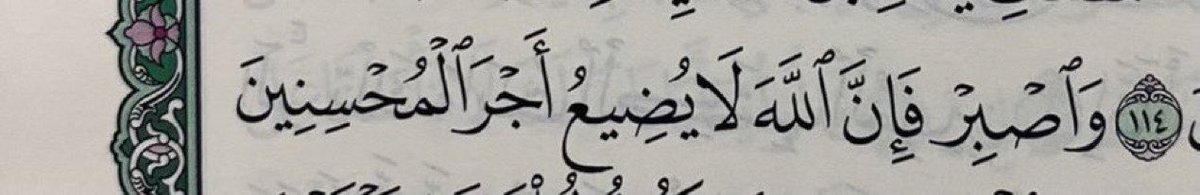 ١١٤ وَٱصْبِرْ فَإِنَّ ٱللَّهَ لَا يُضِيعُ أَجْرَ ٱلْمُحْسِنِينَ